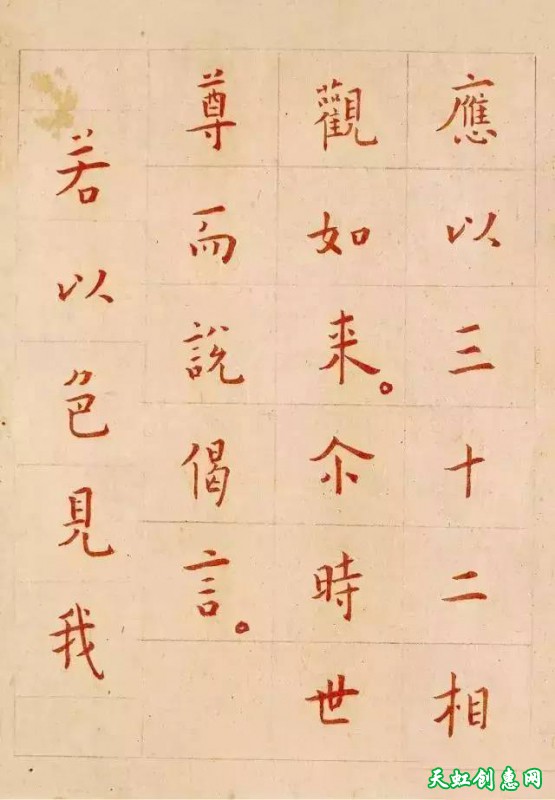 應以三十二相
觀如来。尒時世
尊而說偈言。
若以色見我
天虹创惠网